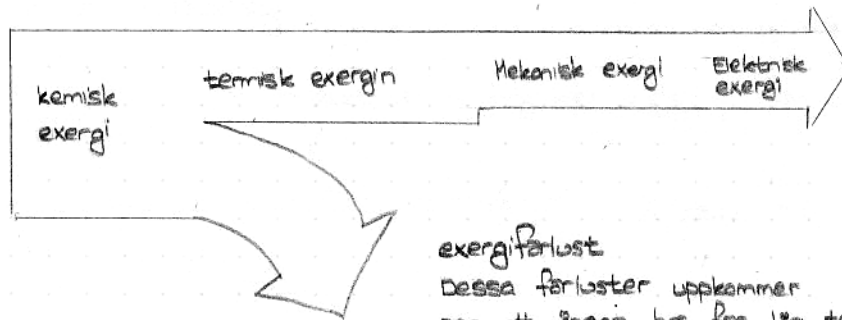 kemisk
exergi
termisk exergin
Mekanisk exergi
Elektrisk
exergi
exergiförlust
Dessa förluster uppkommer